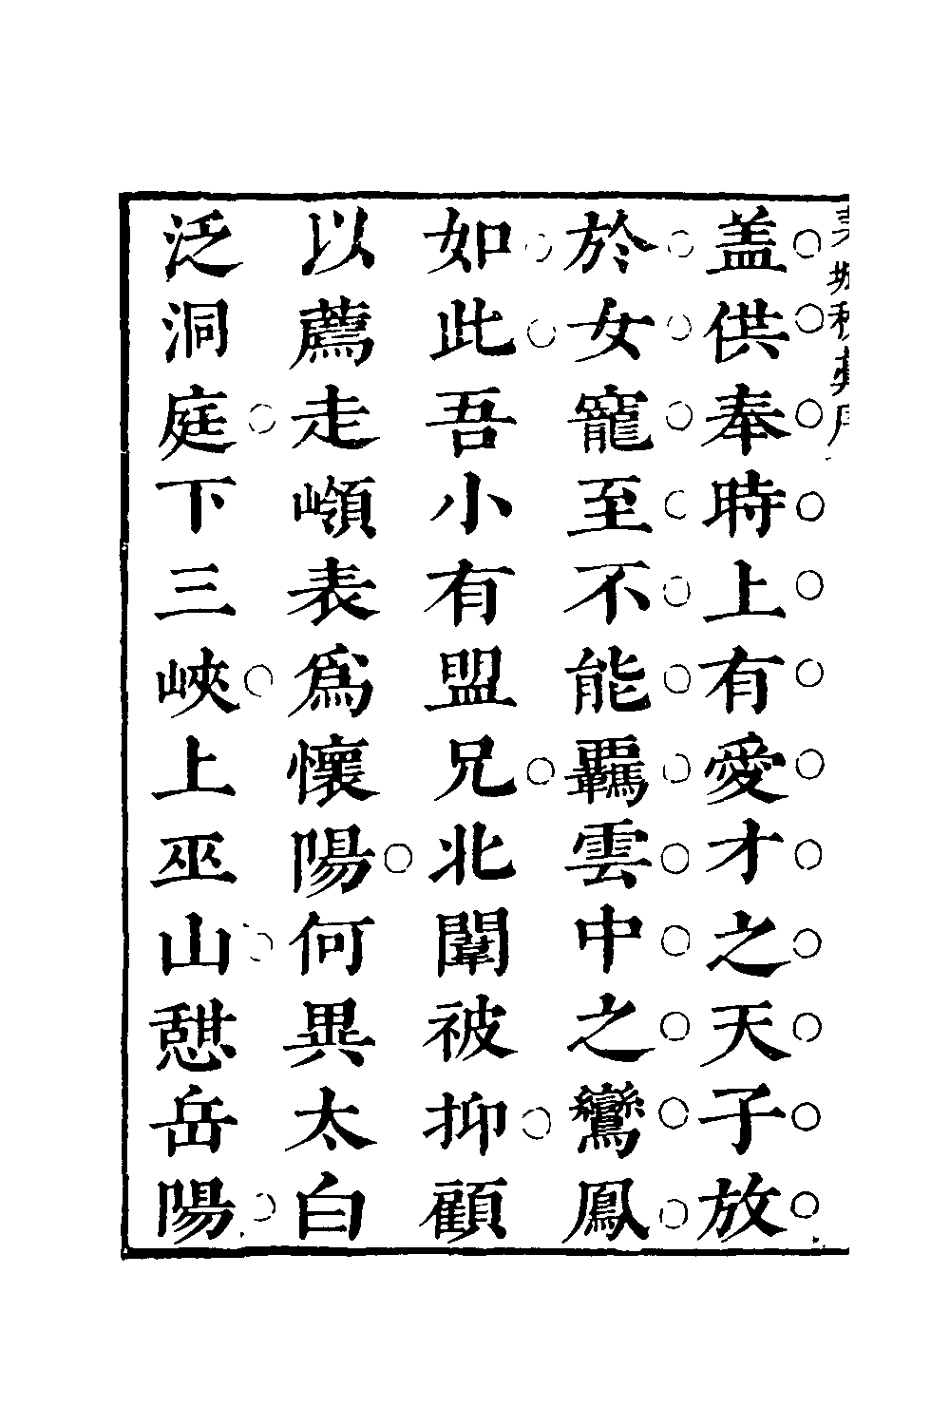 盖供奉時上有愛才之天子放
於女寵至不能羈雲中之鸞鳳
如此吾小有盟兄北闈被抑顧
以薦走巔表爲懷陽何異太白
泛洞庭下三峽上巫山憇岳陽